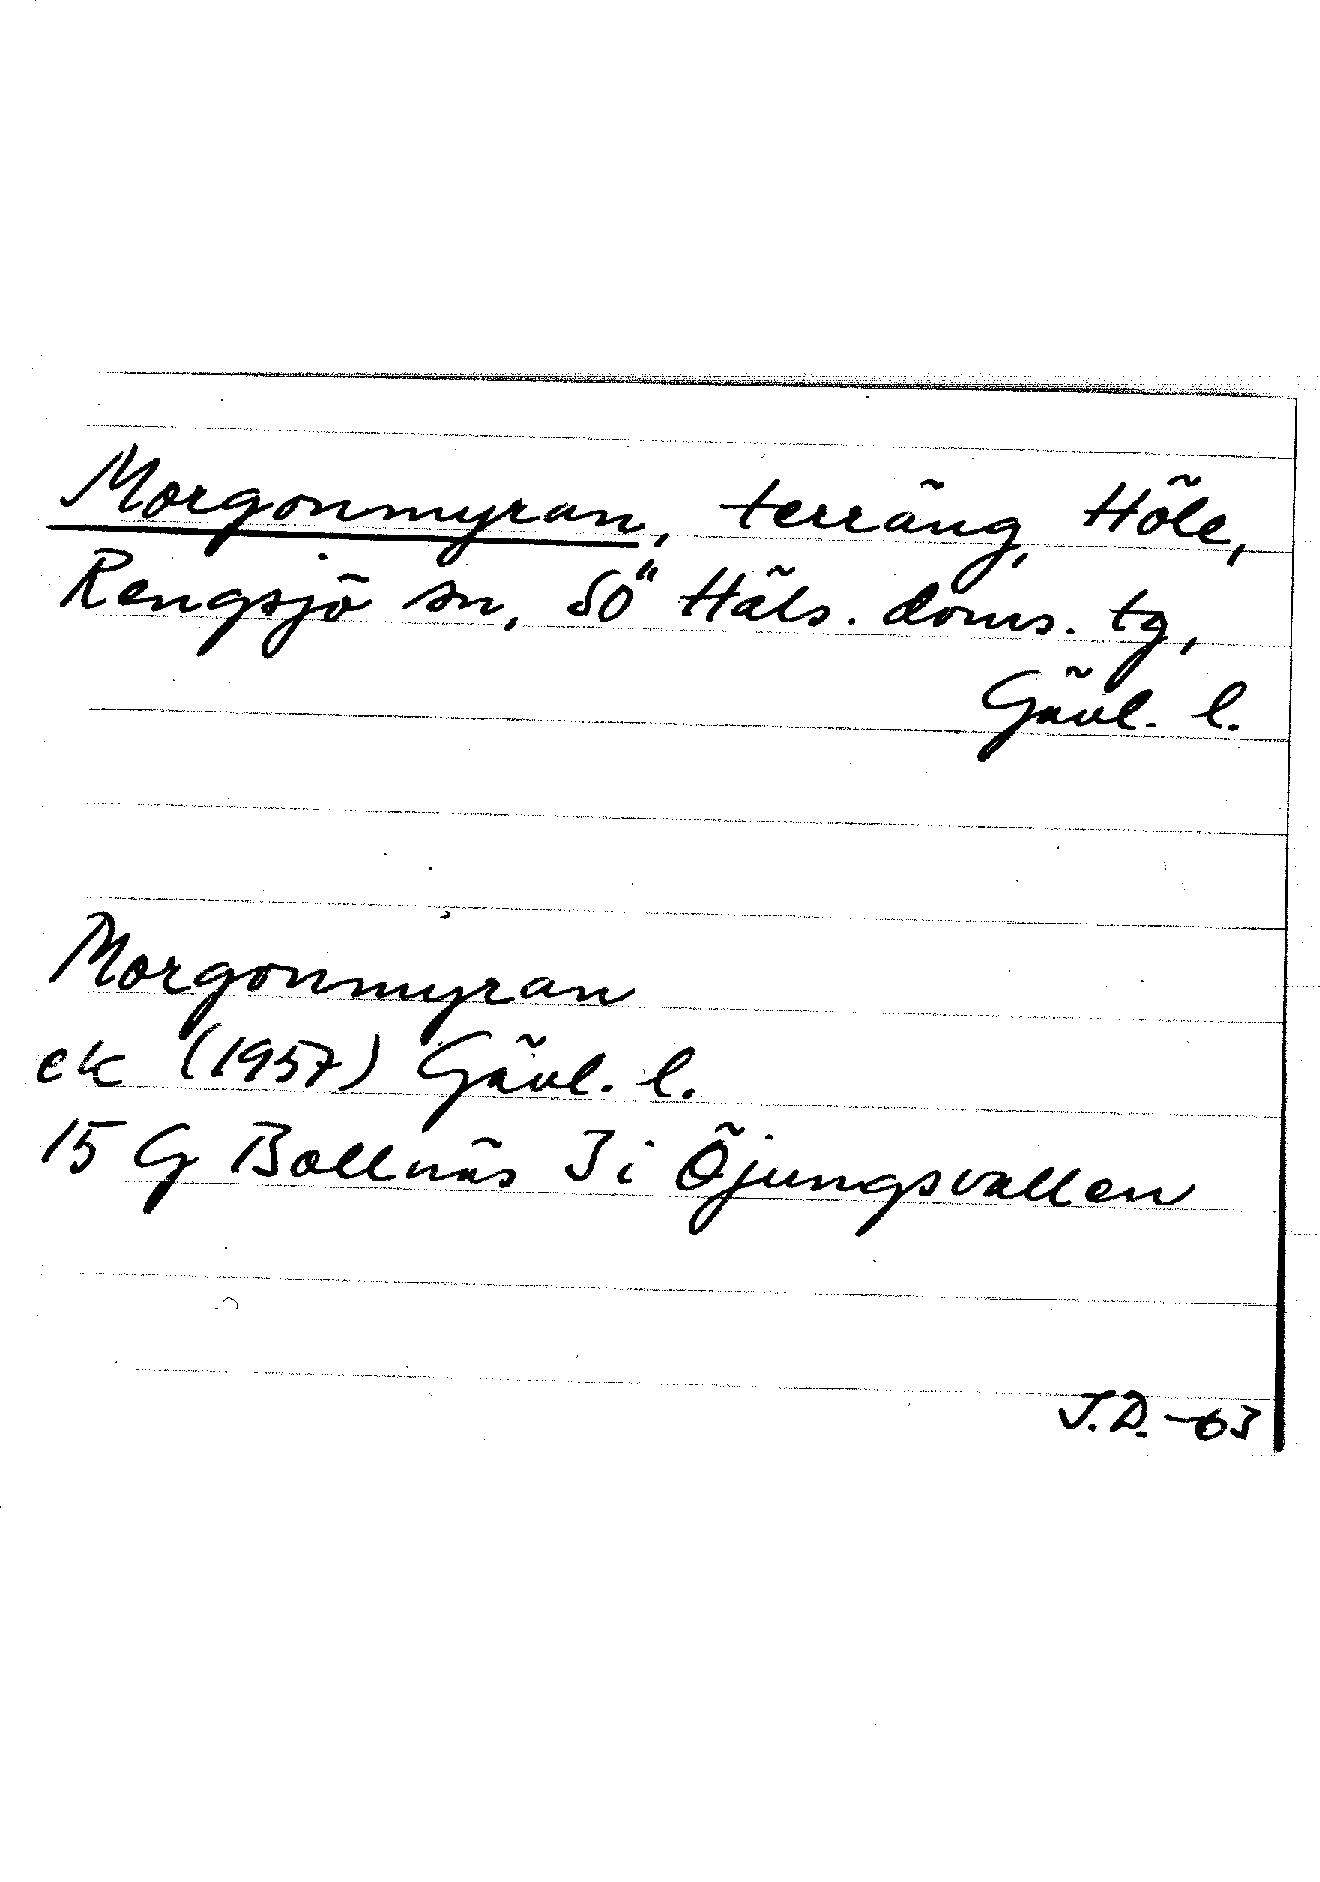 Morgonmyran, terräng, Höle,
Rengsjö sn, Sö Häls. doms. tg,
Gävl. l.
Morgonmyran
ek (1957) Gävl. l.
15 G Bollnäs 3 i Öjungsvallen
J.D. -63